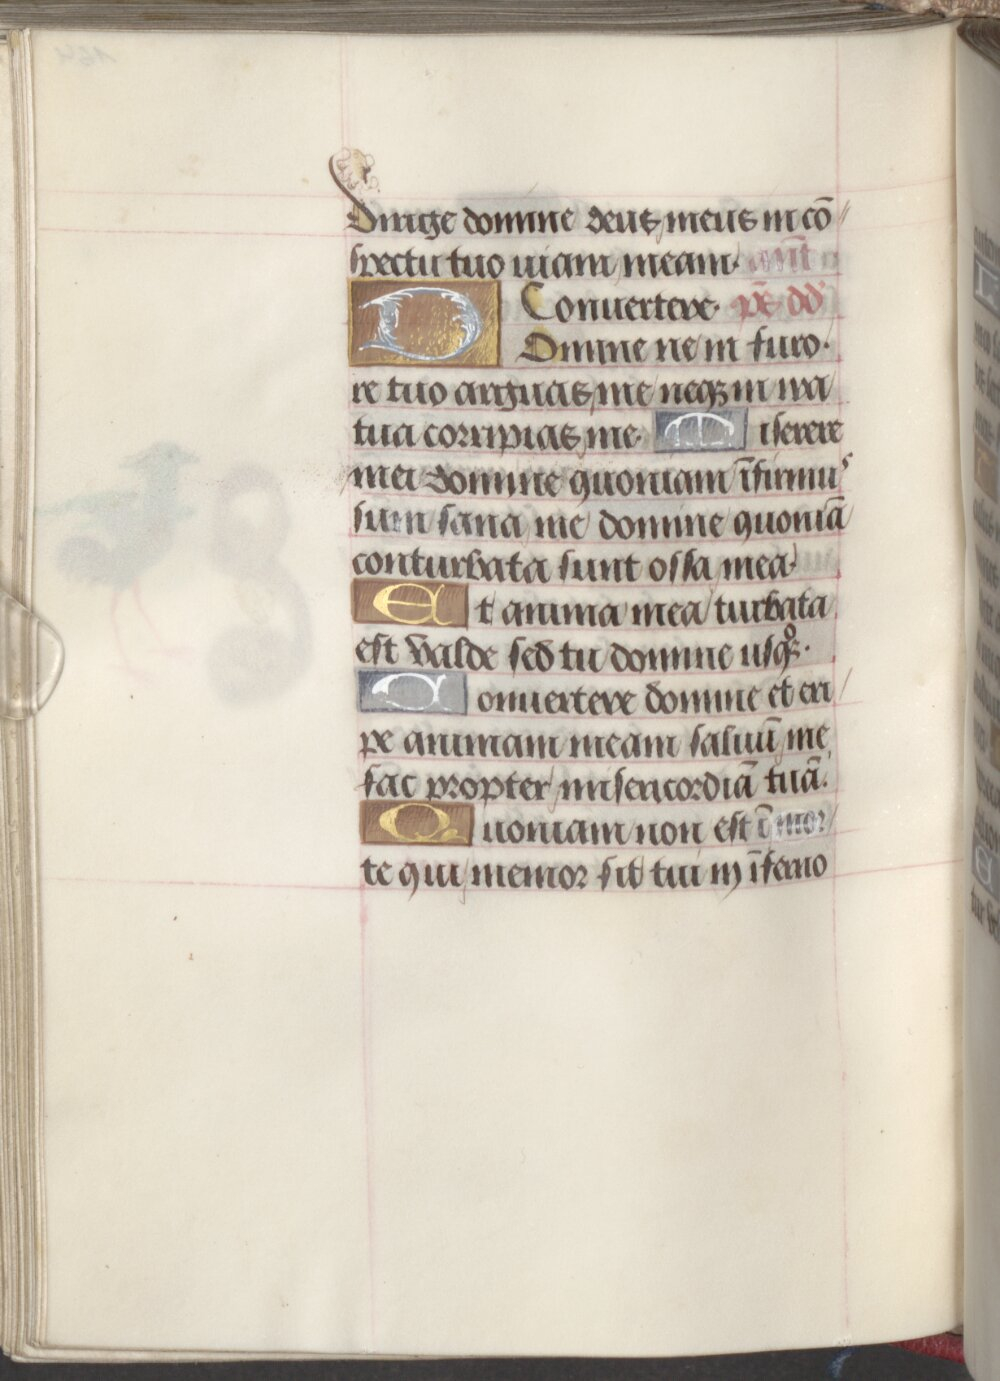 Dirige domine deus meus in cō
spectu tuo uiam meam. añt
Conuertere. ps̄ dd
Domine ne in furo
re tuo arguas me neqꝫ in ira
tua corripias me. Miserere
mei domine quoniam īfirmus
sum sana me domine quoniā
conturbata sunt ossa mea.
Et anima mea turbata
est valde sed tu domine usqꝫ.
Conuertere domine et eri
pe animam meam saluū me
fac propter misericordiā tuā.
Quoniam non est ī mor
te qui memor sit tui in īferno